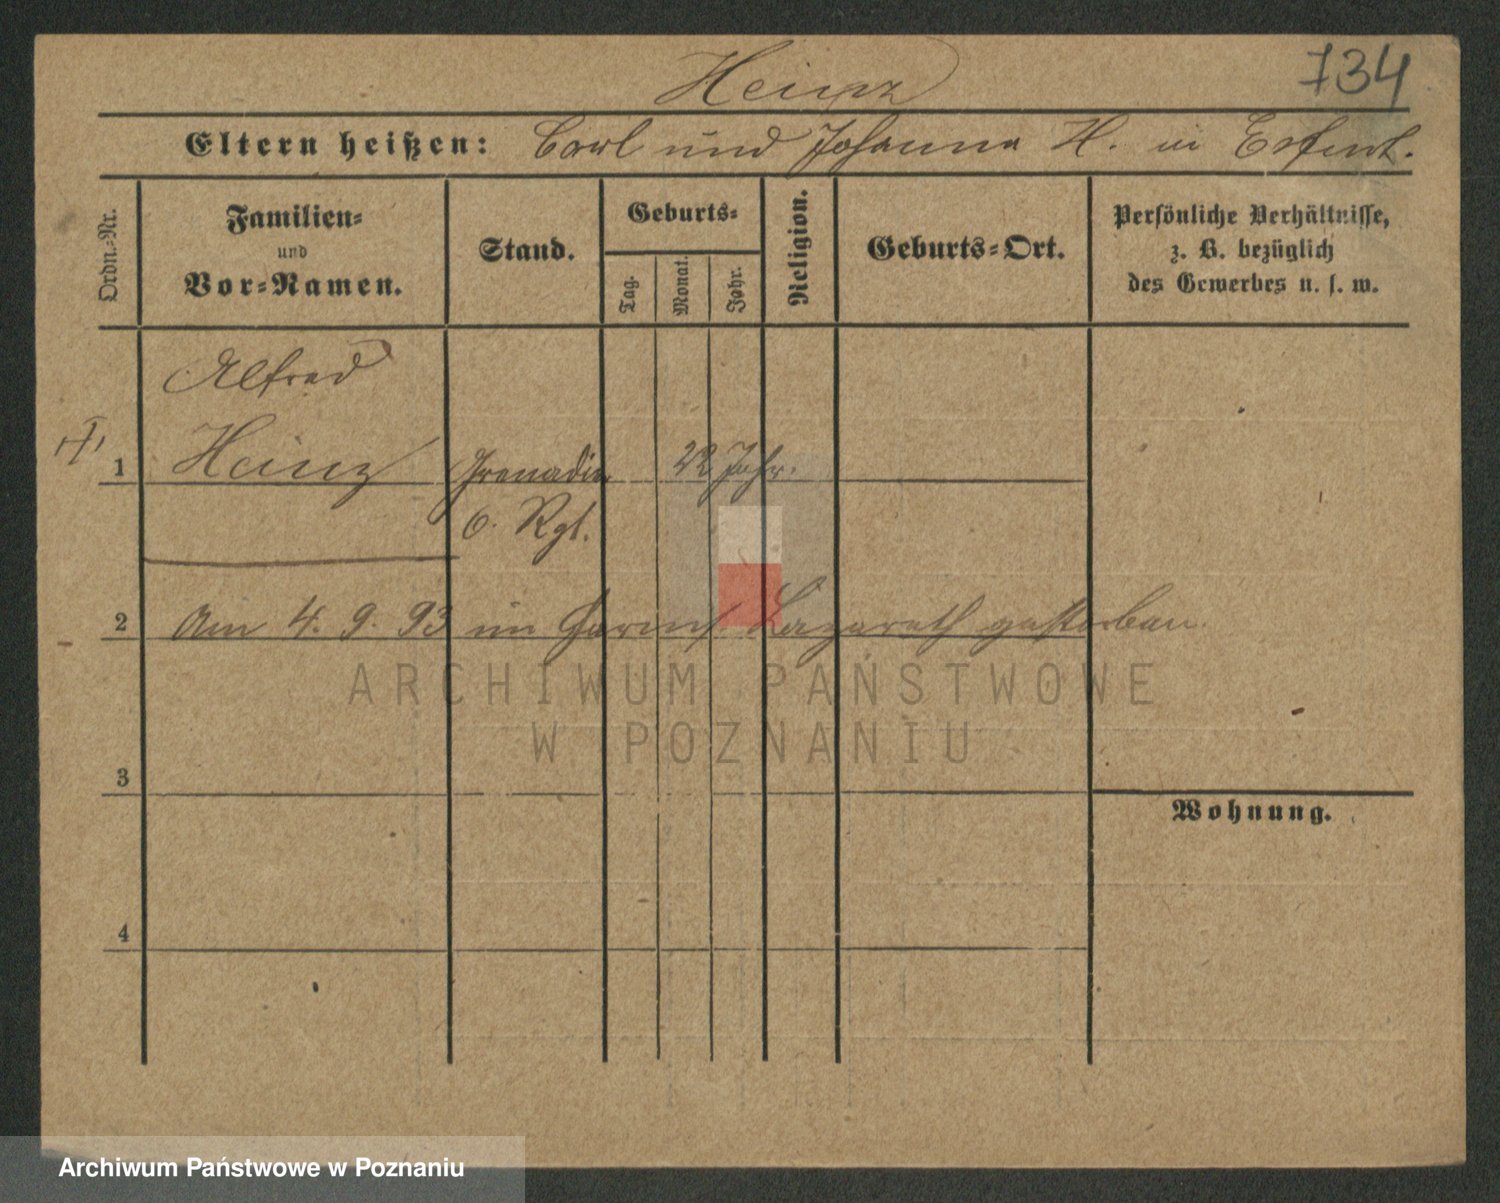 Heinz
734
Eltern heißen: Carl und Johanna H. in Erfurt.
Ordn.-Nr.
Familien-
und
Vor-Namen.
Stand.
Geburts-
Tag.
Monat.
Jahr.
Religion.
Geburts-Ort.
Persönliche Verhältnisse,
z. B. bezüglich
des Gewerbes u. s. w.
Alfred
1 Heinz Grenadier 22 Jahr.
6. Rgt.
2 Am 4. 9. 93 im Garns. Lazareth gestorben
ARCHIWUM PAŃSTWOWE
W POZNANIU
3
Wohnung.
4
Archiwum Państwowe w Poznaniu